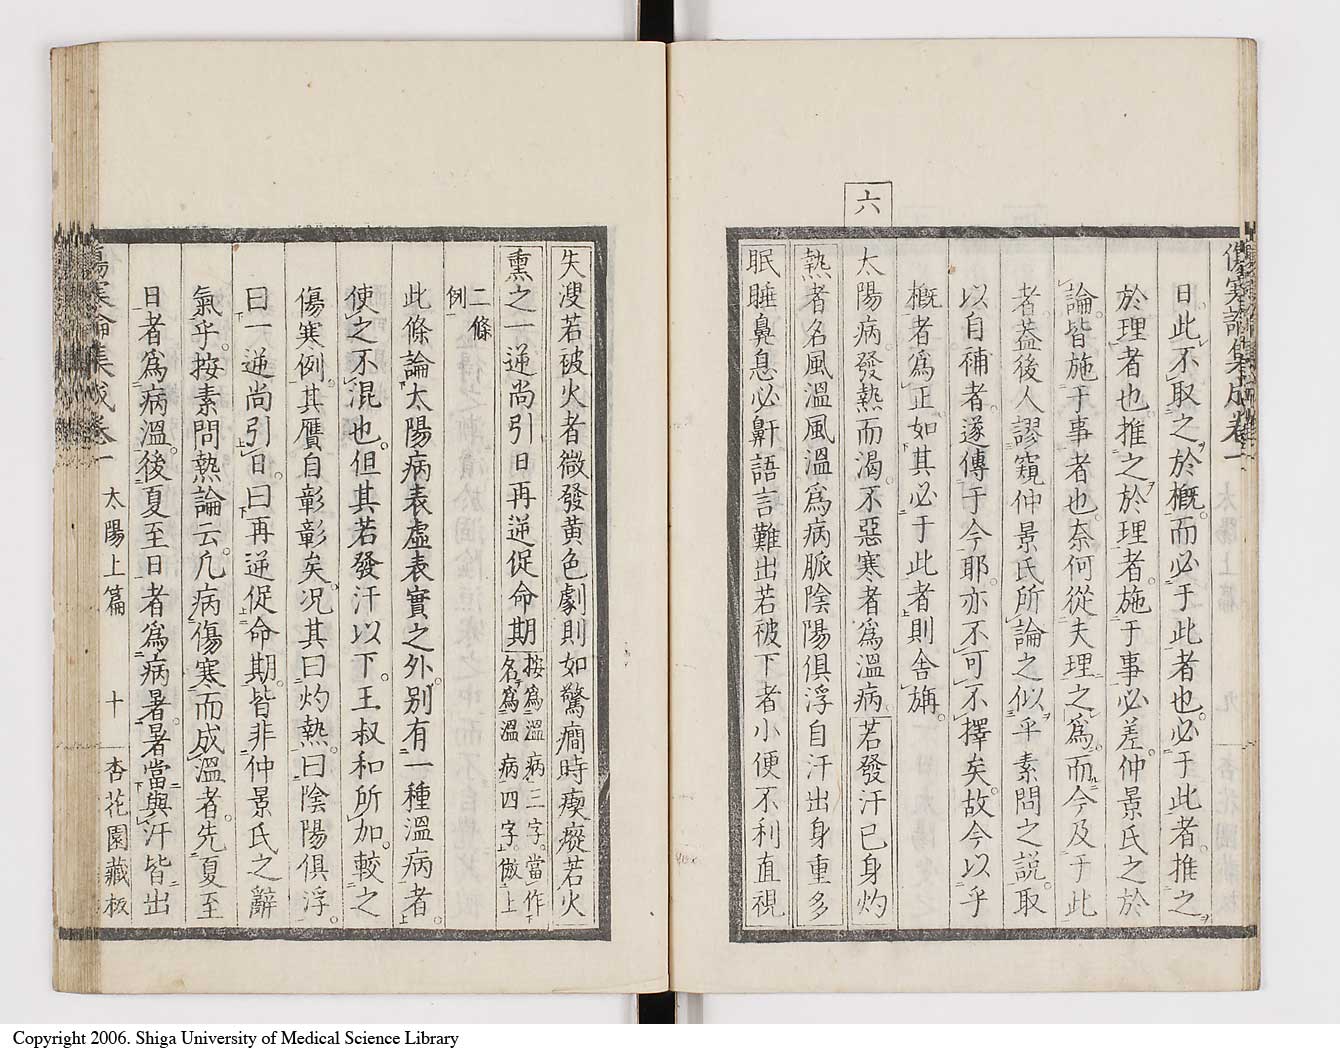 傷寒論集成卷一
曰此不取之於概而必于此者也必于此者推之
於理者也推之於理者施于事必差仲景氏之於
論皆施于事者也奈何從夫理之爲而今及于此
者蓋後人謬窺仲景氏所論之似乎素問之說取
以自補者遂傳于今耶亦不可不擇矣故今以乎
概者爲正如其必于此者則舍旃
六
太陽病發熱而渴不惡寒者爲溫病若發汗已身灼
熱者名風溫風溫爲病脈陰陽俱浮自汗出身重多
眠睡鼻息必鼾語言難出若被下者小便不利直視
失溲若被火者微發黄色劇則如驚癎時瘈瘲若火
熏之一逆尚引日再逆促命期按爲溫病三字當作
名爲溫病四字倣上
二條
例
此條論太陽病表虛表實之外別有一種溫病者
使之不混也但其若發汗以下王叔和所加較之
傷寒例其贋自彰彰矣况其曰灼熱曰陰陽俱浮
曰一逆尚引日曰再逆促命期皆非仲景氏之辭
氣乎按素問熱論云凡病傷寒而成溫者先夏至
日者爲病溫後夏至日者爲病暑暑當與汗皆出
傷寒論集成卷一 太陽上篇 十 杏花園藏板
Copyright 2006. Shiga University of Medical Science Library